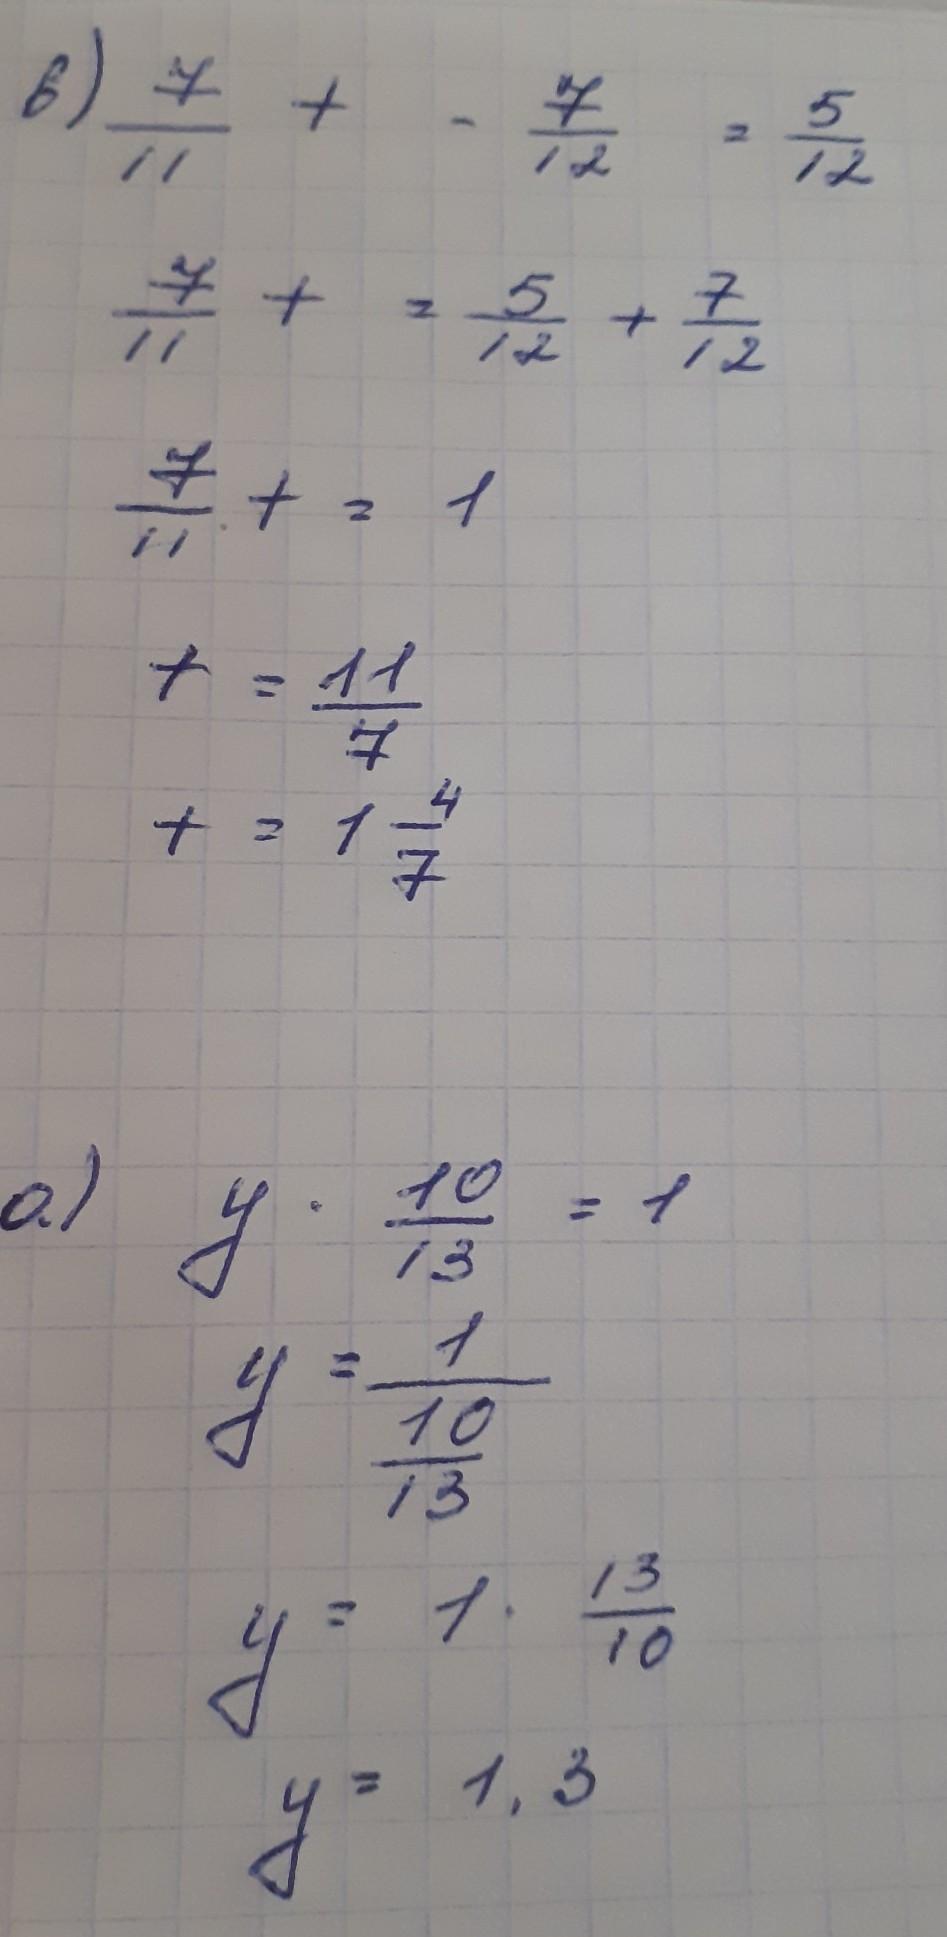 в) 7/11 t - 7/12 = 5/12
7/11 t = 5/12 + 7/12
7/11 t = 1
t = 11/7
t = 1 4/7
а) y · 10/13 = 1
y = 1/(10/13)
y = 1 · 13/10
y = 1,3